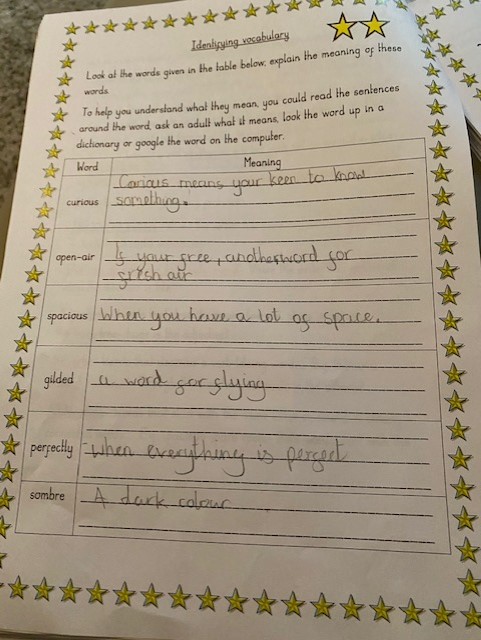 Identifying vocabulary
Look at the words given in the table below, explain the meaning of these
words.
To help you understand what they mean, you could read the sentences
around the word, ask an adult what it means, look the word up in a
dictionary or google the word on the computer.
Word Meaning
curious Corious means your keen to know
something.
open-air Is your free, andtherword for
gresh air
spacious When you have a lot of space.
gilded a word for flying
perfectly when everything is pergect
sombre A dark colour